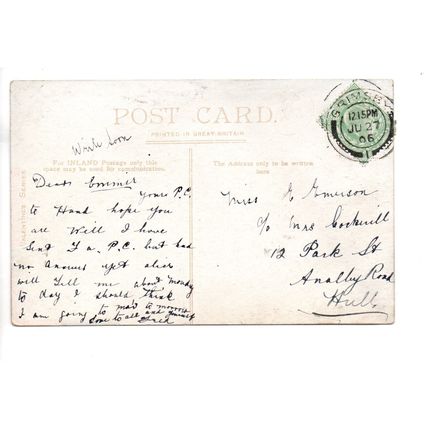 POST CARD.
PRINTED IN GREAT BRITAIN
Write Soon
For INLAND Postage only this
space may be used for communication.
The Address only to be written
here
VALENTINES SERIES
GRIMSBY
12 15PM
JU 27
06
1
Dear Emmer
Yours P.C.
to Hand hope you
are Well I have
Sent a P.C. but had
no Answer yet
will Tell me about Monday
to day I should think
I am going to to morrow
love to all and yourself
Fred
Miss E Emerson
c/o Mrs Cockerill
12 Park St
Analley Road
Hull